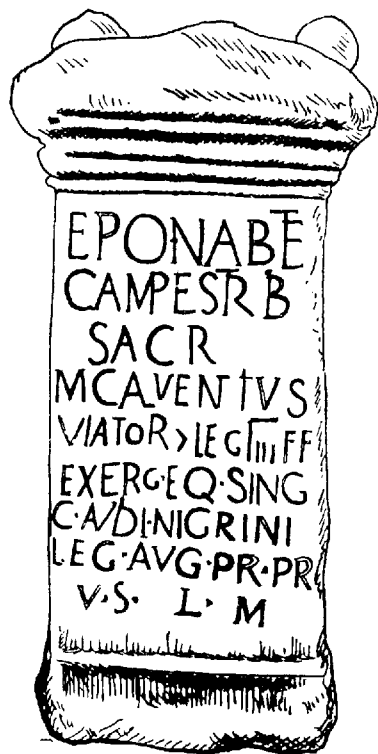 EPONABETE
CAMPESTRIB
SACR
M CALVENTIVS
VIATOR > LEG IIII FF
EXERC·EQ·SING
C·AVIDI·NIGRINI
LEG·AVG·PR·PR
V·S· L· M